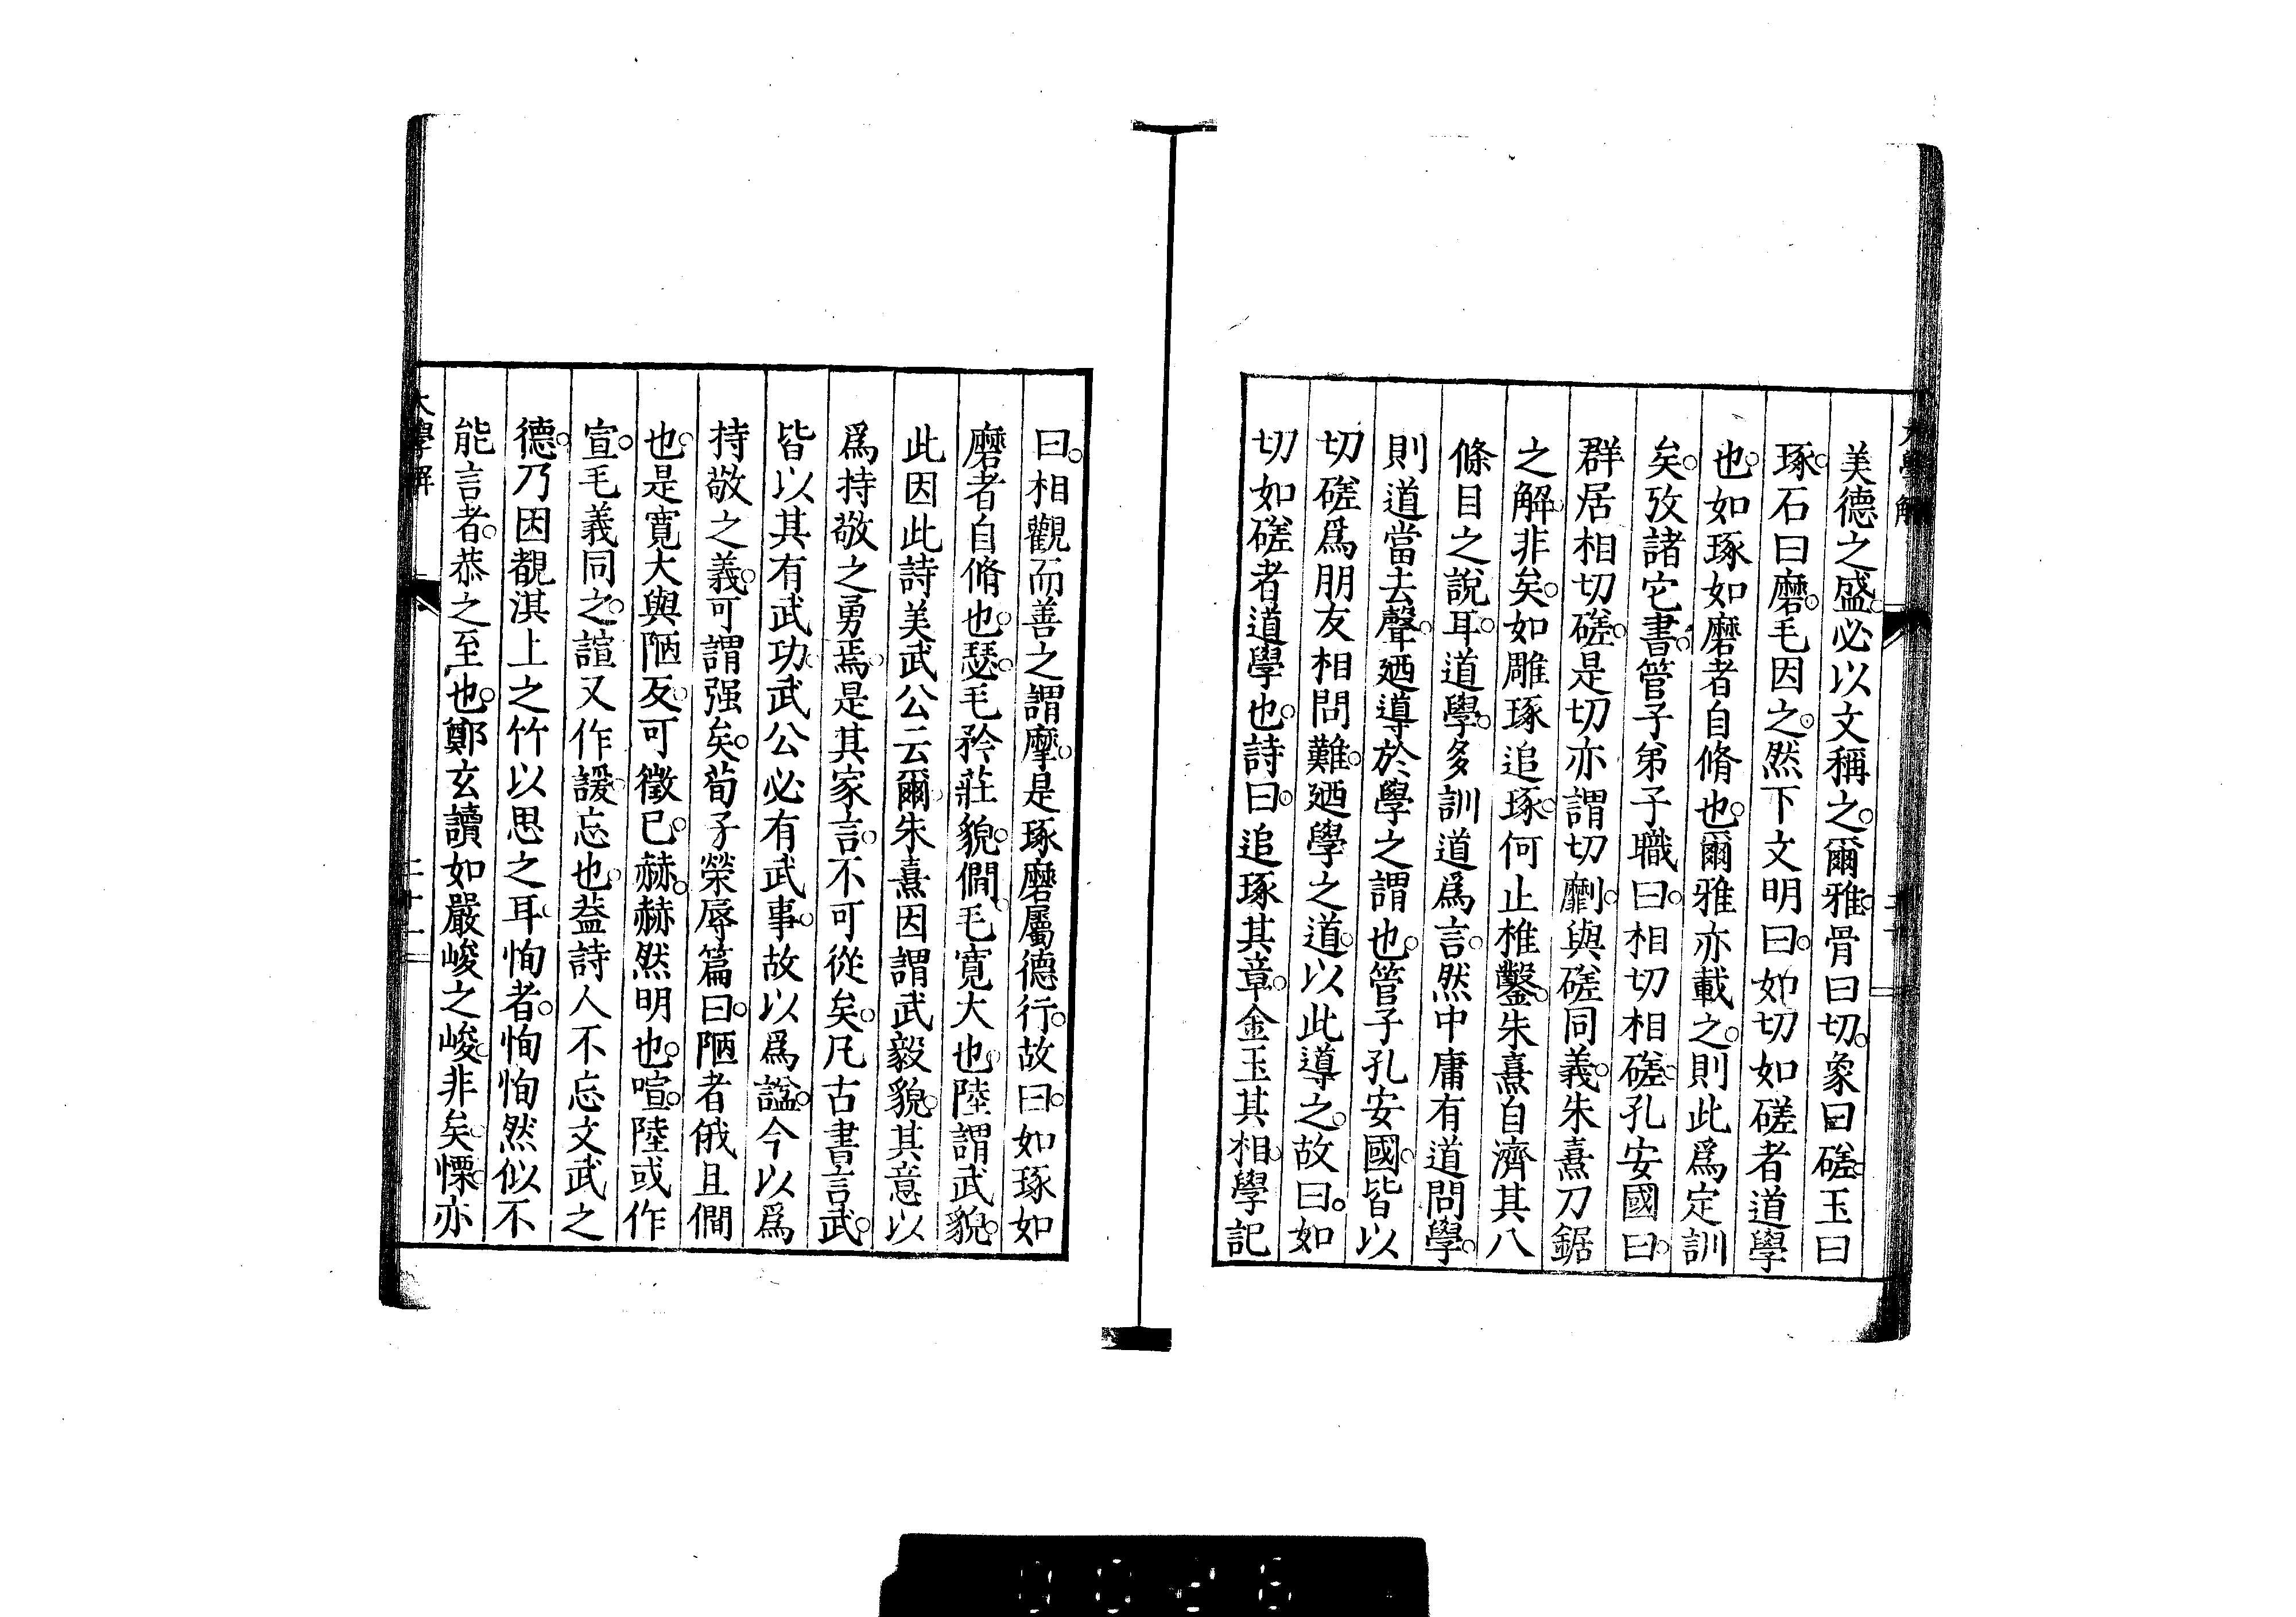 大學解
美德之盛。必以文稱之。爾雅。骨曰切。象曰磋。玉曰
琢。石曰磨。毛因之。然下文明曰。如切如磋者道學
也。如琢如磨者自脩也。爾雅亦載之。則此爲定訓
矣。攷諸它書。管子弟子職曰。相切相磋。孔安國曰。
群居相切磋。是切亦謂切劘。與磋同義。朱熹刀鋸
之解。非矣。如雕琢追琢。何止椎鑿。朱熹自濟其八
條目之說耳。道學。多訓道爲言。然中庸有道問學。
則道當去聲。廼導於學之謂也。管子孔安國。皆以
切磋爲朋友相問難。廼學之道。以此導之。故曰。如
切如磋者道學也。詩曰。追琢其章。金玉其相。學記
曰。相觀而善之謂摩。是琢磨屬德行。故曰。如琢如
磨者自脩也。瑟。毛矜莊貌。僩。毛寬大也。陸謂武貌。
此因此詩美武公云爾。朱熹因謂武毅貌。其意以
爲持敬之勇焉。是其家言。不可從矣。凡古書言武。
皆以其有武功。武公必有武事。故以爲謚。今以爲
持敬之義。可謂强矣。荀子榮辱篇曰。陋者俄且僩
也。是寬大與陋反。可徵已。赫。赫然明也。喧。陸或作
宣。毛義同之。諠又作諼。忘也。葢詩人不忘文武之
德。乃因覩淇上之竹以思之耳。恂者。恂恂然似不
能言者。恭之至也。鄭玄讀如嚴峻之峻。非矣。慄。亦
大學解
二十一